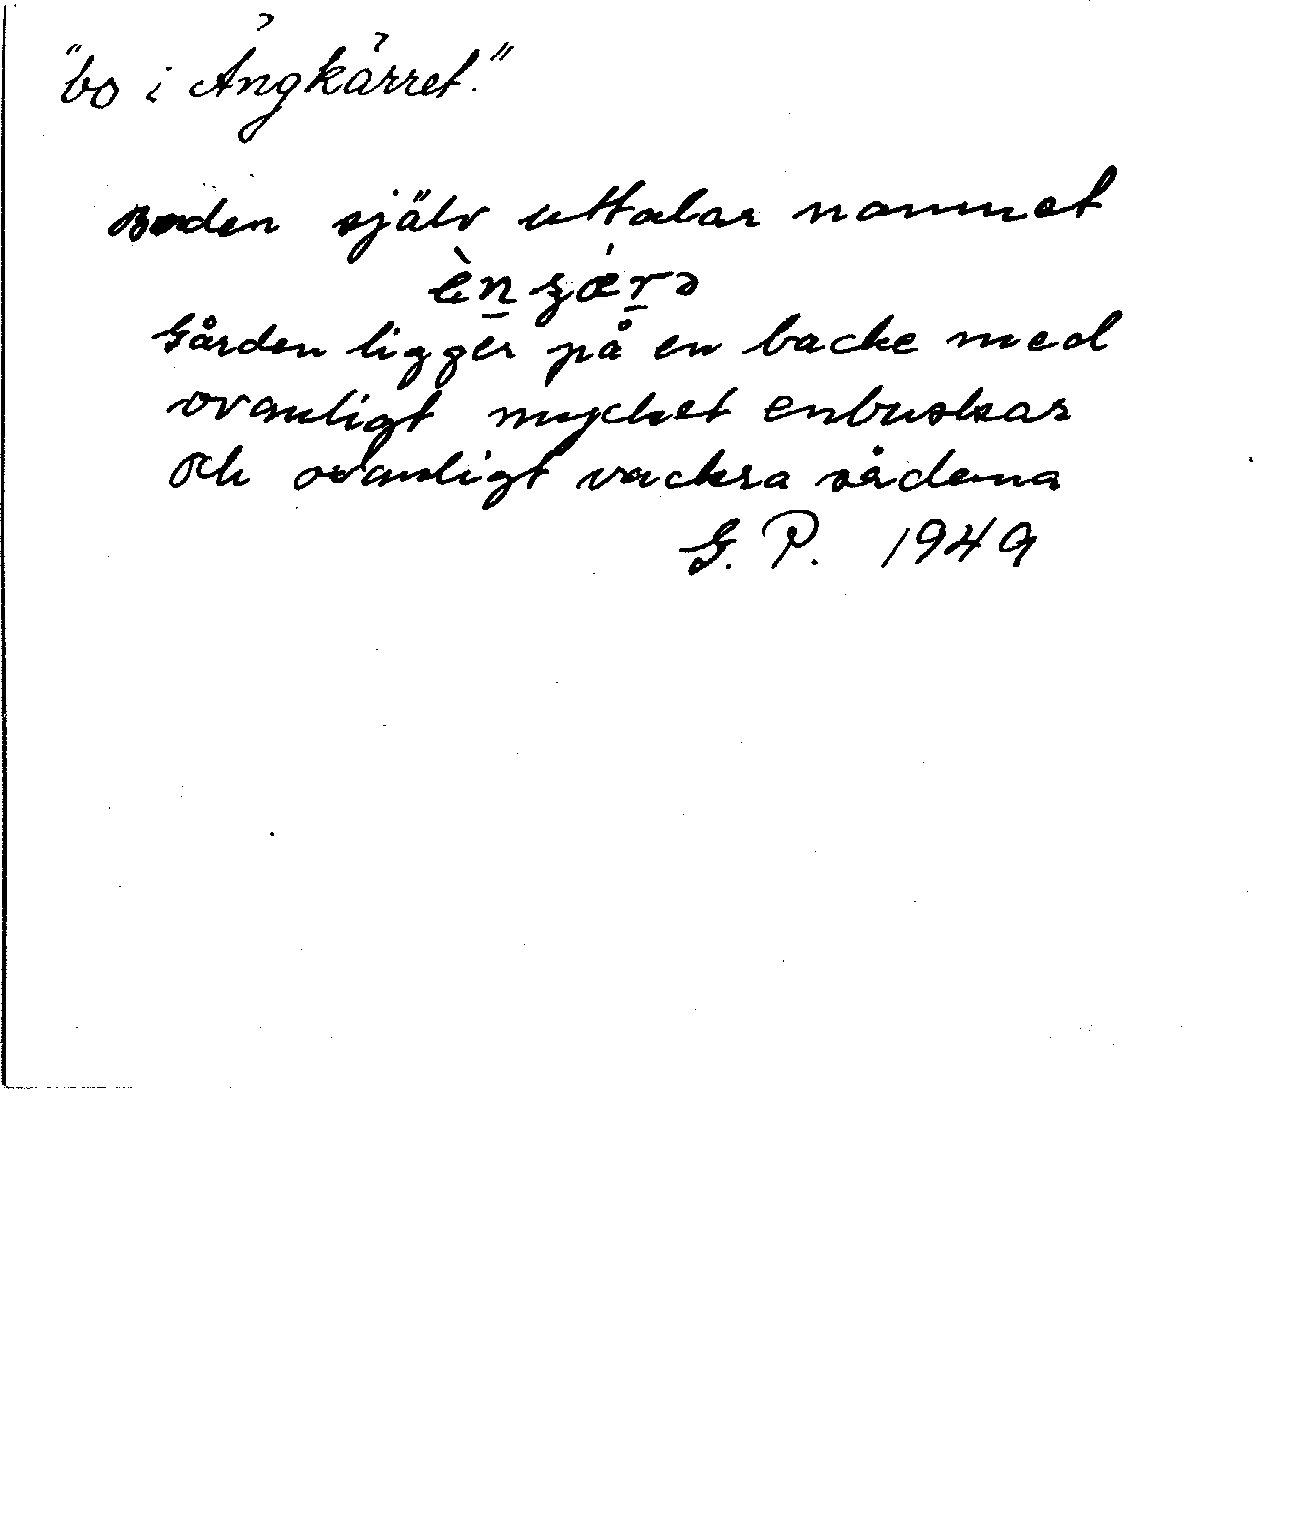 "bo i Ängkärret."
Boden själv uttalar namnet
Gården ligger på en backe med
ovanligt mycket enbuskar
och ovanligt vackra sådana
G. P. 1949